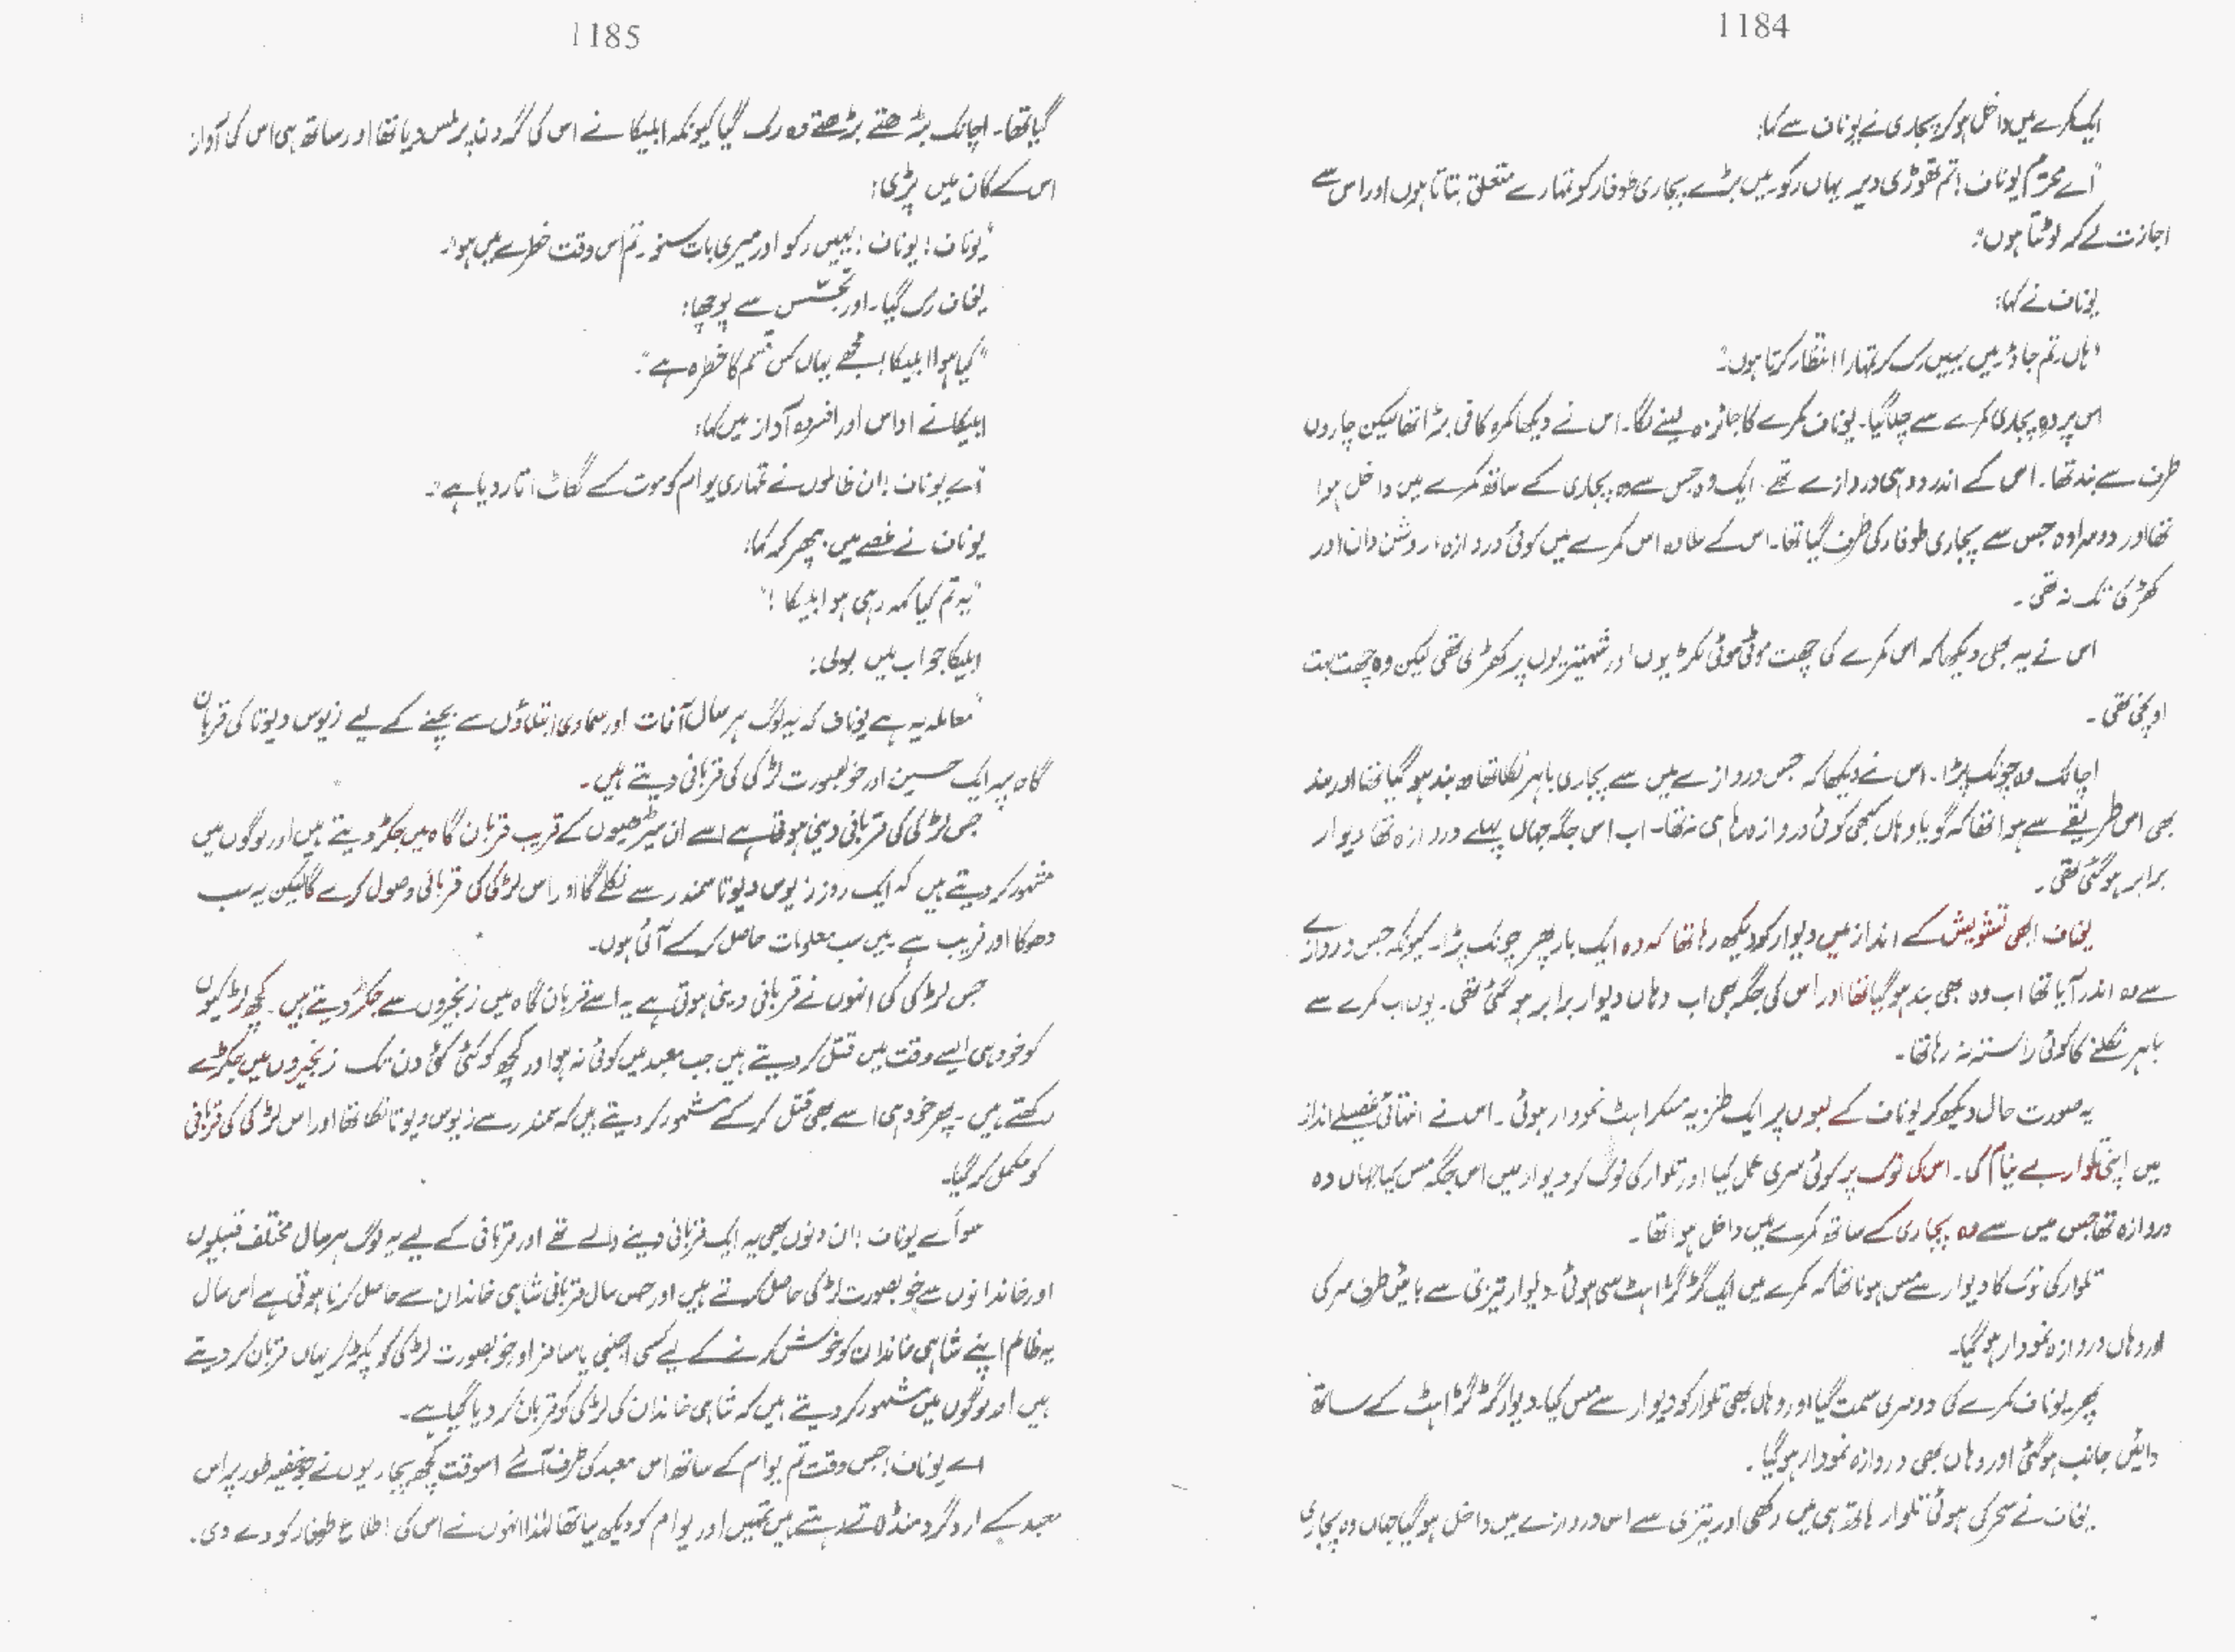 1184
ایک کمرے میں داخل ہو کر پجاری نے یوناف سے کہا:
"اے محترم یوناف! تم تھوڑی دیر یہاں رکو۔ میں بڑے پجاری طوفار کو تمہارے متعلق بتاتا ہوں اور اس سے
اجازت لے کر لوٹتا ہوں"۔
یوناف نے کہا:
"ہاں۔ تم جاؤ۔ میں یہیں رک کر تمہارا انتظار کرتا ہوں۔"
اس پر وہ پجاری کمرے سے چلا گیا۔ یوناف کمرے کا جائزہ لینے لگا۔ اس نے دیکھا کمرہ کافی بڑا تھا لیکن چاروں
طرف سے بند تھا۔ اس کے اندر دو ہی دروازے تھے۔ ایک وہ جس سے وہ پجاری کے ساتھ کمرے میں داخل ہوا
تھا اور دوسرا وہ جس سے پجاری طوفار کی طرف گیا تھا۔ اس کے علاوہ اس کمرے میں کوئی دروازہ، روشن دان اور
کھڑکی تک نہ تھی۔
اس نے یہ بھی دیکھا کہ اس کمرے کی چھت موٹی موٹی لکڑیوں اور شہتیریوں پر کھڑی تھی لیکن وہ چھت بہت
اونچی تھی۔
اچانک وہ چونک پڑا۔ اس نے دیکھا کہ جس دروازے میں سے پجاری باہر نکلا تھا وہ بند ہو گیا تھا اور بند
بھی اس طریقے سے ہوا تھا کہ گویا وہاں کبھی کوئی دروازہ رہا ہی نہ تھا۔ اب اس جگہ جہاں پہلے دروازہ تھا دیوار
برابر ہو گئی تھی۔
یوناف ابھی تشویش کے انداز میں دیوار کو دیکھ رہا تھا کہ وہ ایک بار پھر چونک پڑا۔ کیونکہ جس دروازے
سے وہ اندر آیا تھا اب وہ بھی بند ہو گیا تھا اور اس کی جگہ بھی اب وہاں دیوار برابر ہو گئی تھی۔ یوں اب کمرے سے
باہر نکلنے کا کوئی راستہ نہ رہا تھا۔
یہ صورت حال دیکھ کر یوناف کے لبوں پر ایک طنزیہ مسکراہٹ نمودار ہوئی۔ اس نے انتہائی غصیلے انداز
میں اپنی تلوار بے نیام کی۔ اس کی نوک پر کوئی سری عمل کیا اور تلوار کی نوک کو دیوار میں اس جگہ مس کیا جہاں وہ
دروازہ تھا جس میں سے وہ پجاری کے ساتھ کمرے میں داخل ہوا تھا۔
تلوار کی نوک کا دیوار سے مس ہونا تھا کہ کمرے میں ایک گڑگڑاہٹ سی ہوئی۔ دیوار تیزی سے بائیں طرف سرکی
اور وہاں دروازہ نمودار ہو گیا۔
پھر یوناف کمرے کی دوسری سمت گیا اور وہاں بھی تلوار کو دیوار سے مس کیا۔ دیوار گڑگڑاہٹ کے ساتھ
دائیں جانب ہو گئی اور وہاں بھی دروازہ نمودار ہو گیا۔
یوناف نے سحر کی ہوئی تلوار ہاتھ ہی میں رکھی اور تیزی سے اس دروازے میں داخل ہو گیا جہاں وہ پجاری
1185
گیا تھا۔ اچانک بڑھتے بڑھتے وہ رک گیا کیونکہ ابلیکا نے اس کی گردن پر لمس دیا تھا اور ساتھ ہی اس کی آواز
اس کے کان میں پڑی:
"یوناف! یوناف! یہیں رکو اور میری بات سنو۔ تم اس وقت خطرے میں ہو"۔
یوناف رک گیا۔ اور تجسّس سے پوچھا:
"کیا ہوا ابلیکا! مجھے یہاں کس قسم کا خطرہ ہے"۔
ابلیکا نے اداس اور افسردہ آواز میں کہا:
"اے یوناف! ان ظالموں نے تمہاری یوام کو موت کے گھاٹ اتار دیا ہے"۔
یوناف نے غصے میں بپھر کر کہا:
"یہ تم کیا کہہ رہی ہو ابلیکا!"
ابلیکا جواب میں بولی:
"معاملہ یہ ہے یوناف کہ یہ لوگ ہر سال آفات اور سماوی ابتلاؤں سے بچنے کے لیے زیوس دیوتا کی قربان
گاہ پر ایک حسین اور خوبصورت لڑکی کی قربانی دیتے ہیں۔
جس لڑکی کی قربانی دینی ہوتی ہے اسے ان سیڑھیوں کے قریب قربان گاہ میں جکڑ دیتے ہیں اور لوگوں میں
مشہور کر دیتے ہیں کہ ایک روز زیوس دیوتا سمندر سے نکلے گا اور اس لڑکی کی قربانی وصول کرے گا لیکن یہ سب
دھوکا اور فریب ہے میں سب معلومات حاصل کر کے آئی ہوں۔
جس لڑکی کی انہوں نے قربانی دینی ہوتی ہے یہ اسے قربان گاہ میں زنجیروں سے جکڑ دیتے ہیں۔ کچھ لڑکیوں
کو خود ہی ایسے وقت میں قتل کر دیتے ہیں جب معبد میں کوئی نہ ہو اور کچھ کو کئی کئی دن تک زنجیروں میں جکڑے
رکھتے ہیں۔ پھر خود ہی اسے بھی قتل کر کے مشہور کر دیتے ہیں کہ سمندر سے زیوس دیوتا نکلا تھا اور اس لڑکی کی قربانی
کو مکمل کر گیا۔
سو اے یوناف! ان دنوں بھی یہ ایک قربانی دینے والے تھے اور قربانی کے لیے یہ لوگ ہر سال مختلف قبیلوں
اور خاندانوں سے خوبصورت لڑکی حاصل کرتے ہیں اور جس سال قربانی شاہی خاندان سے حاصل کرنا ہوتی ہے اس سال
یہ ظالم اپنے شاہی خاندان کو خوش کرنے کے لیے کسی اجنبی یا مسافر اور خوبصورت لڑکی کو پکڑ کر یہاں قربان کر دیتے
ہیں اور لوگوں میں مشہور کر دیتے ہیں کہ شاہی خاندان کی لڑکی کو قربان کر دیا گیا ہے۔
اے یوناف! جس وقت تم یوام کے ساتھ اس معبد کی طرف آئے اس وقت کچھ پجاریوں نے جو خفیہ طور پر اس
معبد کے ارد گرد منڈلاتے رہتے ہیں تمہیں اور یوام کو دیکھ لیا تھا لہٰذا انہوں نے اس کی اطلاع طوفار کو دے دی۔